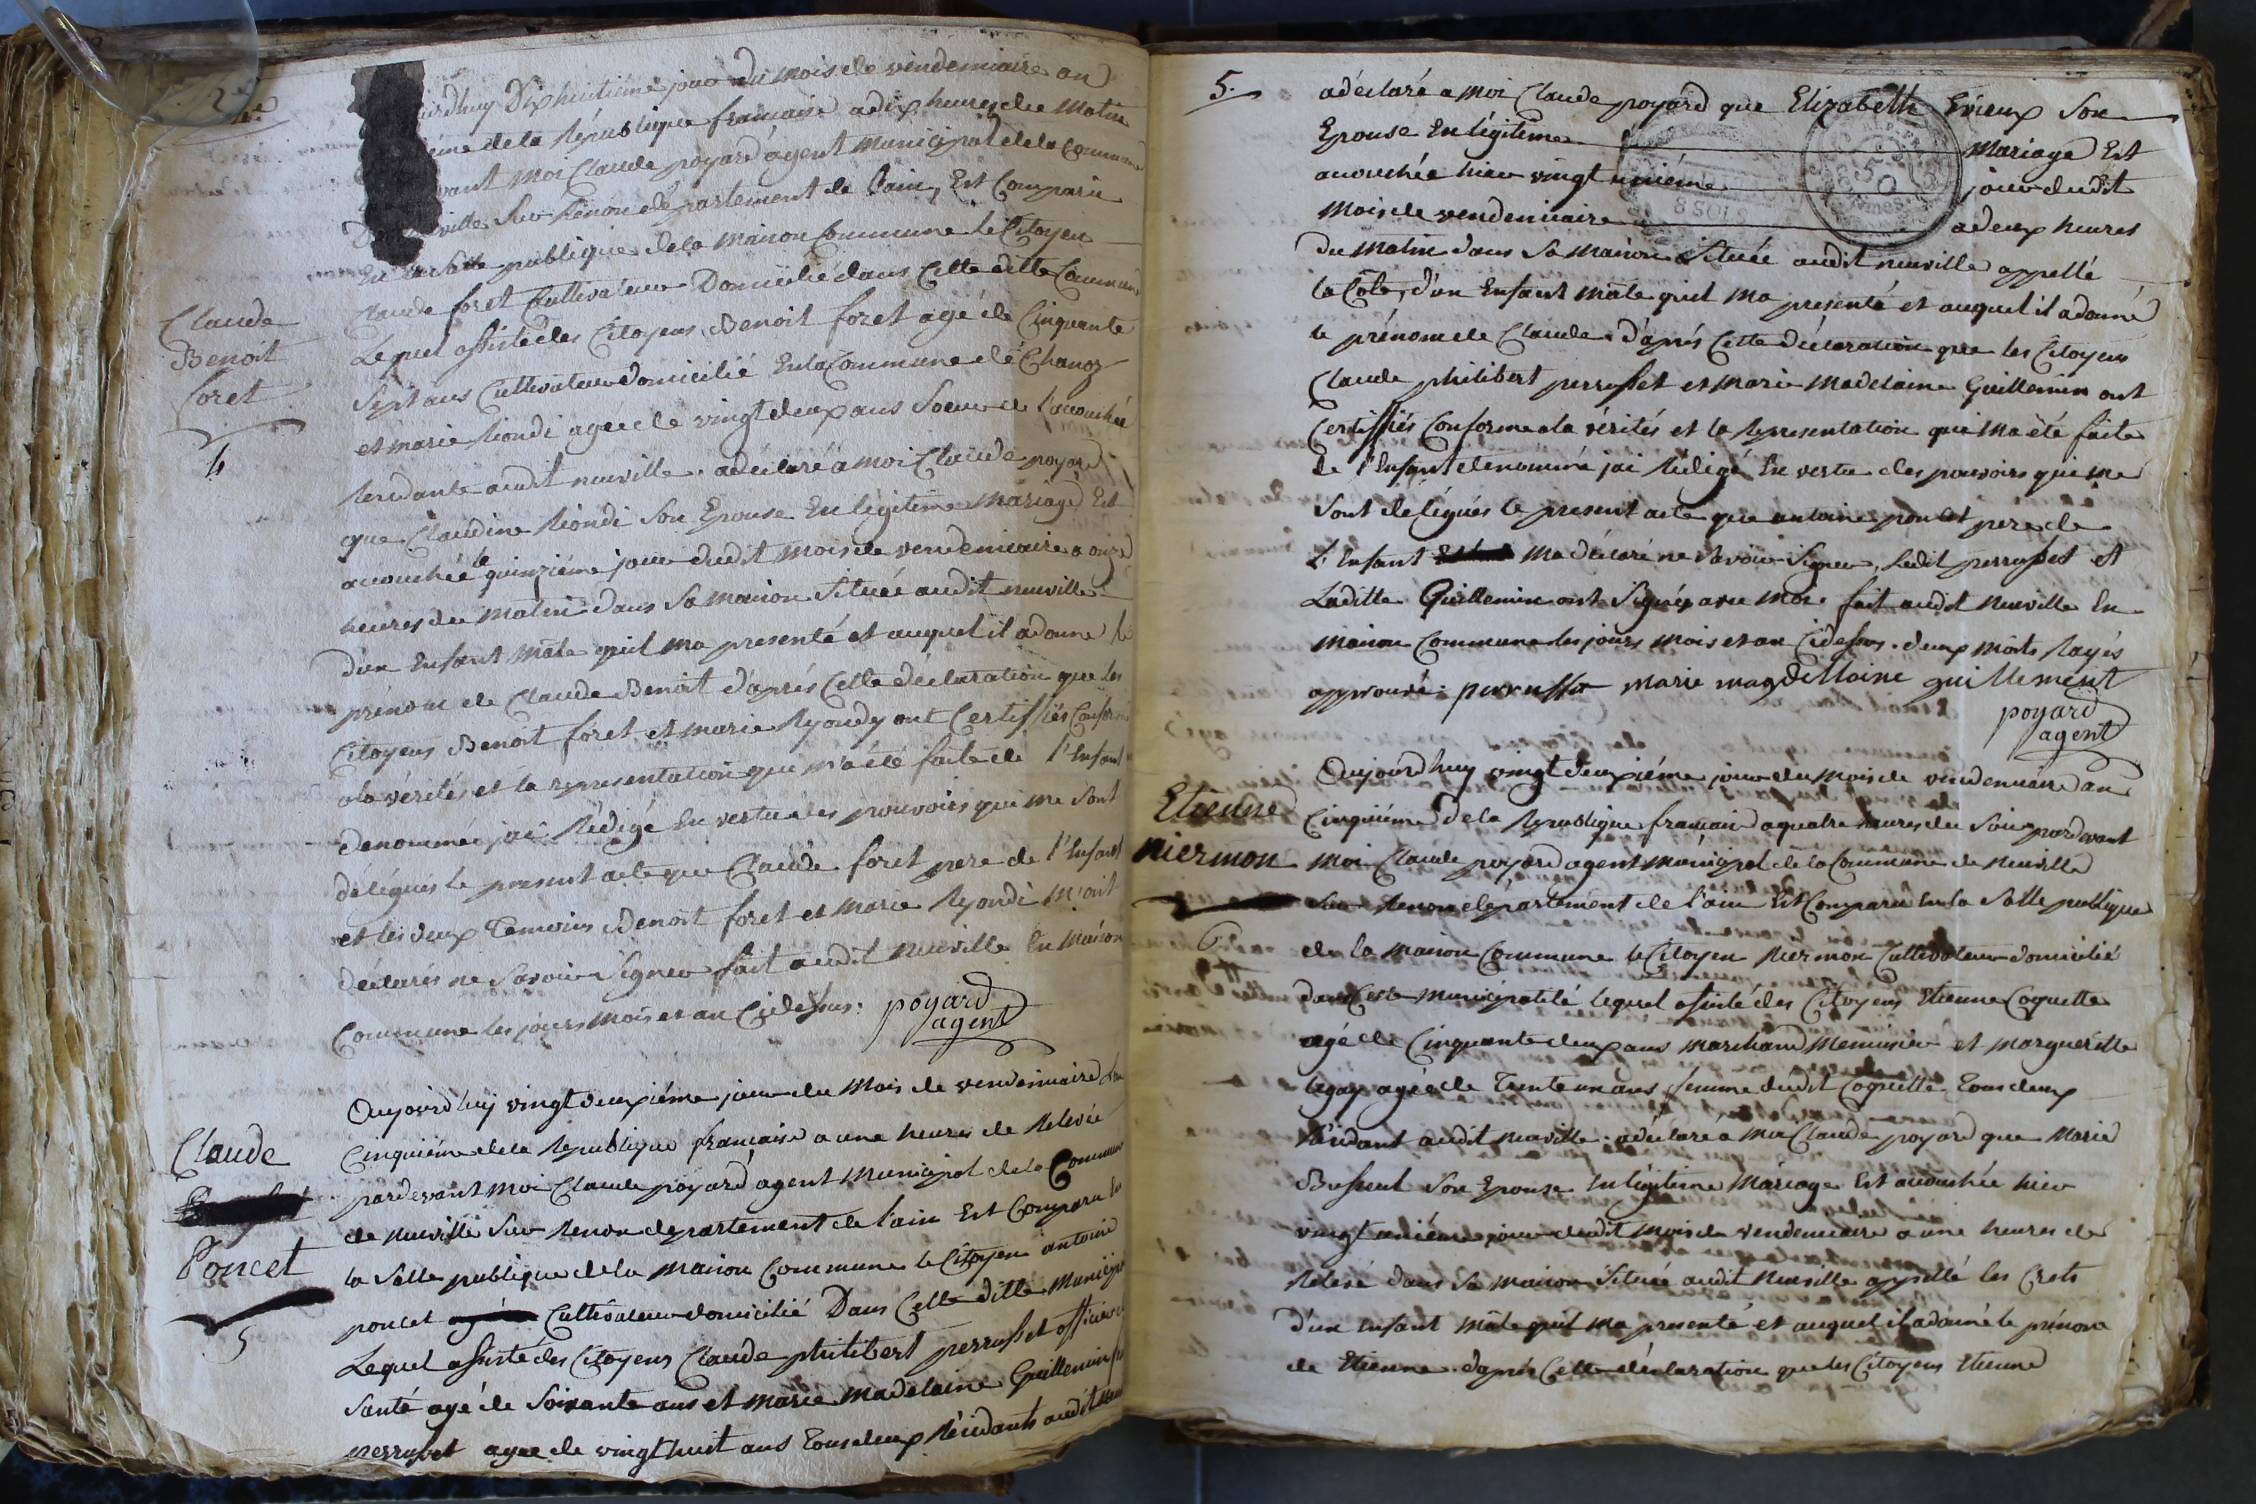 2e
urdhuy Dixhuitième jour du mois de vendemiaire an
ième de la République française a dix heures du matin
vant moi Claude poyard agent municipal de la Commune
De ville Sur Renon département de l'ain, Est Comparu
En la Salle publique de la maison Commune le Citoyen
Claude foret Cultivateur Domicilié dans Cette ditte Commune
Claude
Benoit
foret
4
Lequel assisté des Citoyens Benoit foret agé de Cinquante
Sept ans Cultivateur domicilié En la Commune de Chanoz
et marie Riondi agée de vingt deux ans Soeur de l'acouchée
Residante audit neuville. a déclaré à moi Claude poyard
que Claudine Riondi Son Epouse En légitime mariage Est
acouchée le quinzième jour dudit mois de vendemiaire a onze
heures du matin dans Sa maison Située audit neuville
d'un Enfant mâle quil ma presenté et auquel il a donné le
prénom de Claude Benoit d'après Cette déclaration que les
Citoyens Benoit foret et marie Ryondy ont Certiffiés Conforme
a la vérités et la representation qui m'a été faite de l'Enfant
denommé jai Rédigé En vertu des pouvoirs qui me Sont
délégués le present acte que Claude foret pere de l'Enfant
et les deux Temoins Benoit foret et Marie Ryondi m'ont
déclarés ne Savoir Signer fait audit Neuville En maison
Commune les jours mois et an Cidessus: poyard
agent
Aujourd'huy vingt deuxiéme jour du Mois de vendemiaire l'an
Cinquième de la Republique française a une heures de Relevée
pardevant moi Claude poyard agent Municipal de la Commune
de neuville Sur Renon departement de l'ain Est Comparu En
la Salle publique de la maison Commune le Citoyen antoine
Claude
Poncet
5
poncet Cultivateur domicilié Dans Cette ditte Municip
Lequel assisté des Citoyens Claude philibert perrusset officier de
Santé agé de Soixante ans et marie madelaine Guillemin
perrusset agée de vingt huit ans Tous deux Résidants audit
5.
a déclaré a moi Claude poyard que Elizabeth Erieux Son
Epouse En légitime mariage Est
acouchée hier vingt unième jour dudit
mois de vendemiaire a deux heures
du matin dans Sa maison Située audit neuville appellé
la Côte, d'un Enfant mâle quil ma presenté et auquel il a donné
le prénom de Claude. d'après Cette déclaration que les Citoyens
Claude philibert perrusset et marie Madelaine Guillemin ont
Certiffiés Conforme a la vérités et la Representation qui Ma été faite
de l'Enfant denommé jai Rédigé En vertu des pouvoirs qui me
Sont délégués le present acte que antoine poncet pere de
L'Enfant Ma déclaré ne Savoir Signer, Ledit perrusset et
Laditte Guillemin ont Signés avec Moi. fait audit Neuville En
maison Commune les jours mois et an Cidessus. deux mots Rayés
approuvé: perrusset marie magdellaine guillement
poyard
agent
Aujourd'huy vingt deuxième jour du mois de vendemiaire an
Etienne
niermon
6
Cinquième de la Republique française a quatre heures du Soir pardevant
moi Claude poyard agent Municipal de la Commune de Neuville
Sur Renon département de l'ain Est Comparu En la Salle publique
de la maison Commune le Citoyen Niermon Cultivateur domicilié
dans Cette Municipalité lequel assisté des Citoyens Etienne Coquette
agé de Cinquante deux ans marchand Menuisier et marguerette
legay agée de Trente un ans femme dudit Coquette Tous deux
Résidant audit neuville. a déclaré a Moi Claude poyard que Marie
Son Epouse En légitime Mariage Est acouchée hier
vingt unième jour dudit mois de vendemiaire a une heures de
Relevé dans Sa maison Située audit Neuville appellé les Crets
d'un Enfant Mâle quil Ma presenté et auquel il a donné le prénom
de Etienne. d'après Cette déclaration que les Citoyens Etienne